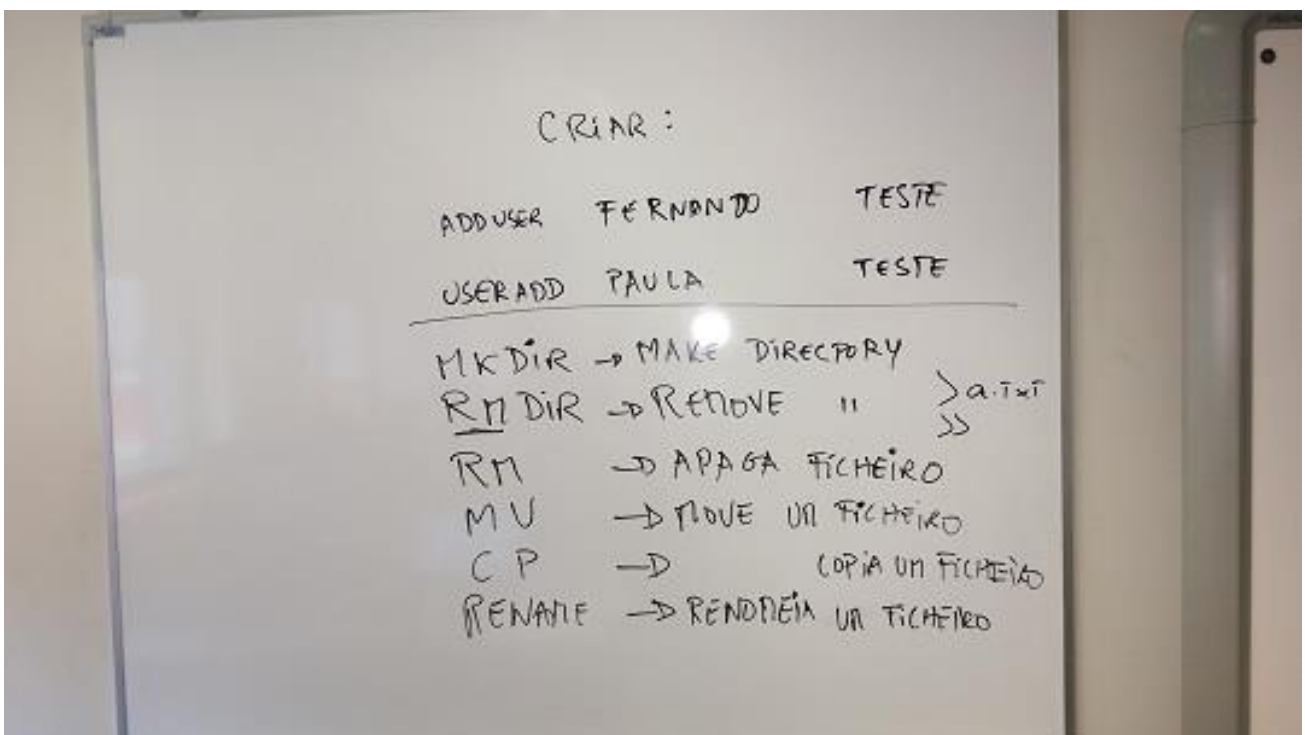 CRiAR :
ADDUSER FERNANDO TESTE
USERADD PAULA TESTE
MKDiR → MAKE DiRECTORY
RMDiR → REMOVE " > a.txt
>>
RM → APAGA FiCHEiRO
MV → MOVE UM FiCHEiRO
CP → COPiA UM FiCHEiRO
RENAME → RENOMEiA UM FiCHEiRO